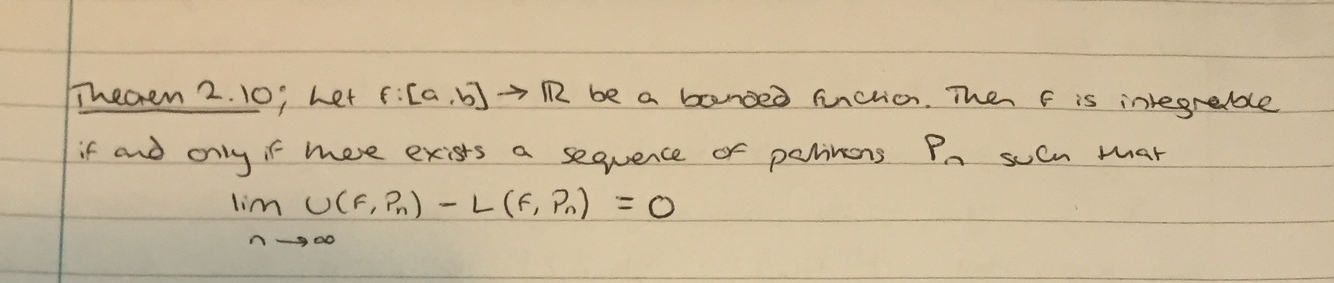 Theorem 2.10; Let f:[a,b] → ℝ be a bounded function. Then f is integrable
if and only if there exists a sequence of partitions Pₙ such that
lim U(f, Pₙ) - L (f, Pₙ) = 0
n → ∞